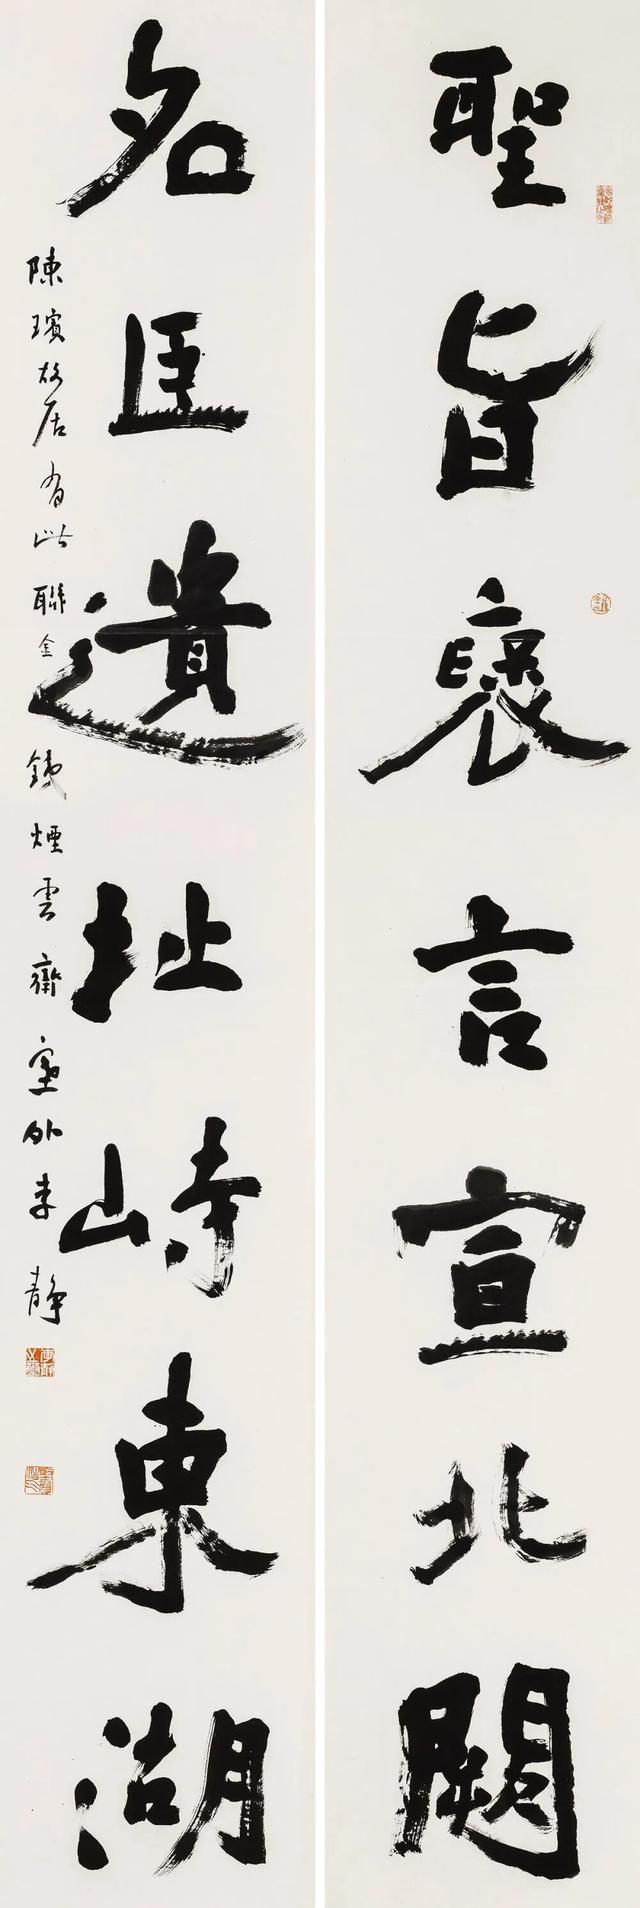 聖旨褒言宣北闕
名臣遺址峙東湖
陳璸故居有此聯金
錢煙雲齋塞外李靜